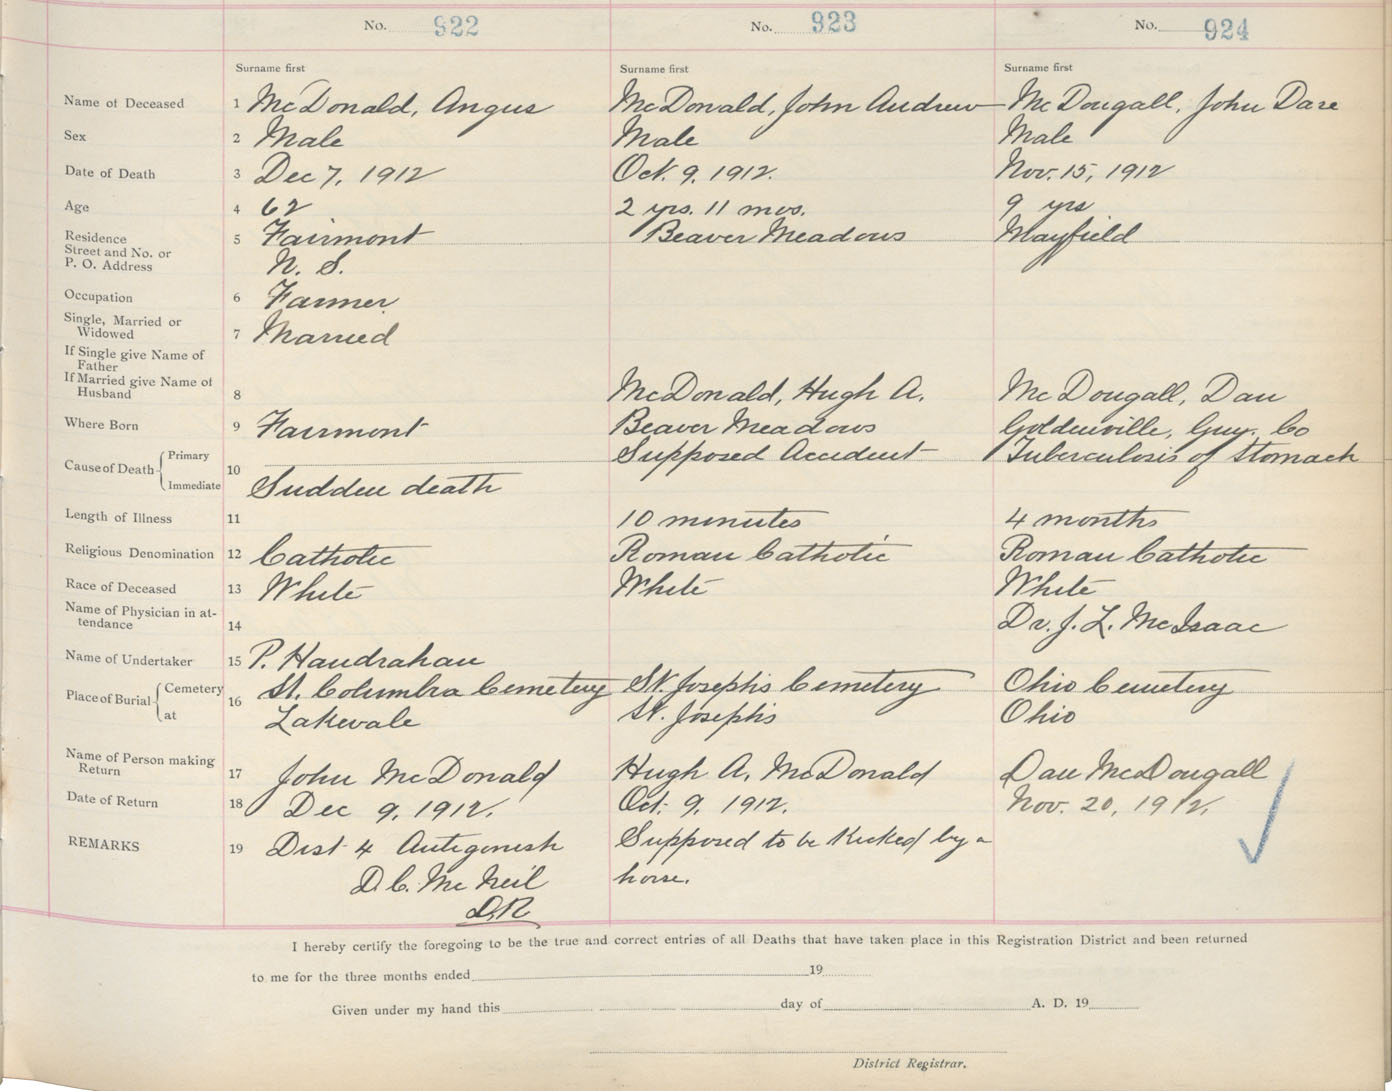 No. 922 No. 923 No. 924
Surname first Surname first Surname first
Name of Deceased 1 McDonald, Angus McDonald, John Andrew McDougall, John Dare
Sex 2 Male Male Male
Date of Death 3 Dec 7, 1912 Oct. 9. 1912. Nov. 15, 1912
Age 4 62 2 yrs. 11 mos. 9 yrs
Residence 5 Fairmont Beaver Meadows Mayfield
Street and No. or
P. O. Address N. S.
Occupation 6 Farmer
Single, Married or
Widowed 7 Married
If Single give Name of
Father
If Married give Name of
Husband 8 McDonald, Hugh A. McDougall, Dan
Where Born 9 Fairmont Beaver Meadows Goldenville, Guy. Co
Cause of Death Primary 10 Supposed Accident Tuberculosis of Stomach
Immediate Sudden death
Length of Illness 11 10 minutes 4 months
Religious Denomination 12 Catholic Roman Catholic Roman Catholic
Race of Deceased 13 White White White
Name of Physician in at-
tendance 14 Dr. J. L. McIsaac
Name of Undertaker 15 P. Handrahan
Place of Burial Cemetery 16 St. Columbra Cemetery St. Joseph's Cemetery Ohio Cemetery
at Lakevale St. Joseph's Ohio
Name of Person making
Return 17 John McDonald Hugh A. McDonald Dan McDougall
Date of Return 18 Dec 9, 1912. Oct. 9. 1912. Nov. 20, 1912.
REMARKS 19 Dist 4 Antigonish Supposed to be Kicked by a
D. C. McNeil horse.
D.R
I hereby certify the foregoing to be the true and correct entries of all Deaths that have taken place in this Registration District and been returned
to me for the three months ended 19
Given under my hand this day of A. D. 19
District Registrar.